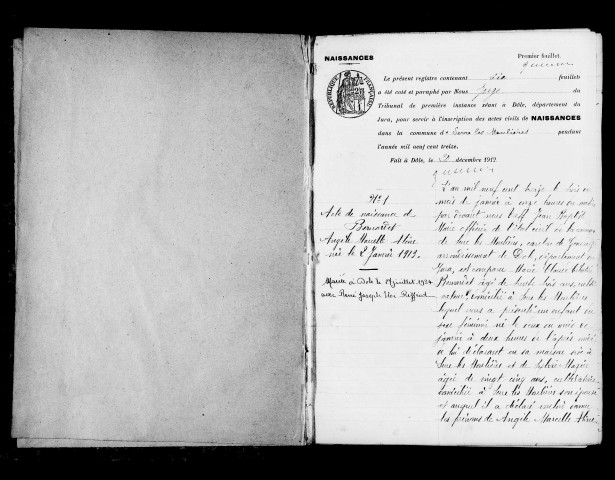 NAISSANCES
Premier feuillet.
RÉPUBLIQUE FRANÇAISE
Le présent registre contenant dix feuillets
a été coté et paraphé par Nous Juge du
Tribunal de première instance séant à Dôle, département du
Jura, pour servir à l'inscription des actes civils de NAISSANCES
dans la commune de Serre les Moulières pendant
l'année mil neuf cent treize.
Fait à Dôle, le décembre 1912.
N° 1
Acte de naissance de
Angèle Marcelle
née le 2 Janvier 1913.
Mariée à Dole le juillet 1934
avec Pierre Joseph
L'an mil neuf cent treize le trois du
mois de janvier à onze heures du matin
par devant nous Jean Baptiste
Maire officier de l'état civil de la commune
de Serre les Moulières, canton de
arrondissement de Dole, département du
Jura, est comparu Marie
âgé de trente trois ans,
domicilié à Serre les Moulières
lequel nous a présenté un enfant du
sexe féminin né le deux du mois de
janvier à deux heures de l'après midi
de lui déclarant en sa maison sise à
Serre les Moulières et de Marie
âgée de vingt cinq ans, cultivatrice
domiciliée à Serre les Moulières son épouse
et auquel il a déclaré vouloir donner
les prénoms de Angèle Marcelle